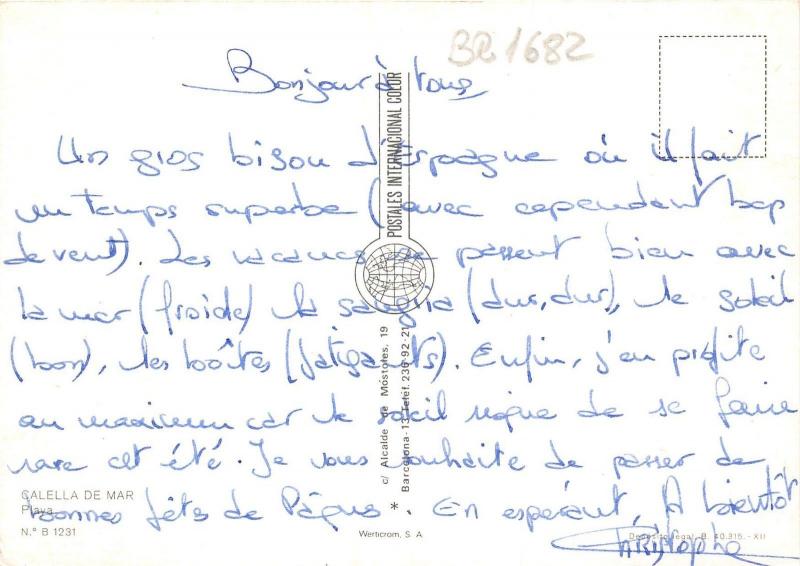 BR1682
Bonjour à tous
Un gros bisou d'Espagne où il fait
un temps superbe (avec cependant bcp
de vent). Les vacances se passent bien avec
la mer (froide) la sangria (dur, dur), le soleil
(bon), les boîtes (fatigants). Enfin, j'en profite
au maximum car le soleil risque de se faire
rare cet été. Je vous souhaite de passer de
bonnes fêtes de Pâques. En espérant, A bientôt
Christophe
POSTALES INTERNACIONAL COLOR
c/ Alcalde de Móstoles, 19
Barcelona-13 Teléf. 236-92-21
*
CALELLA DE MAR
Playa
N.° B 1231
Werticrom, S. A.
Depósito legal, B. 40.315.-XII